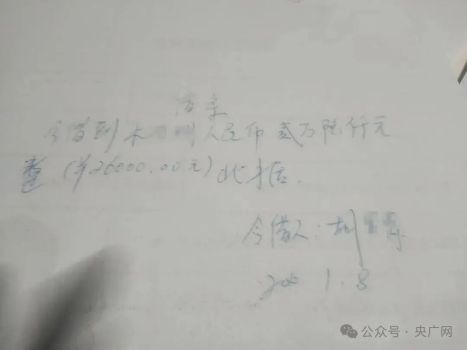 借条
今借到木 人民币贰万陆仟元
整(¥26000.00元)此据.
今借人:胡
1.8
公众号·央广网